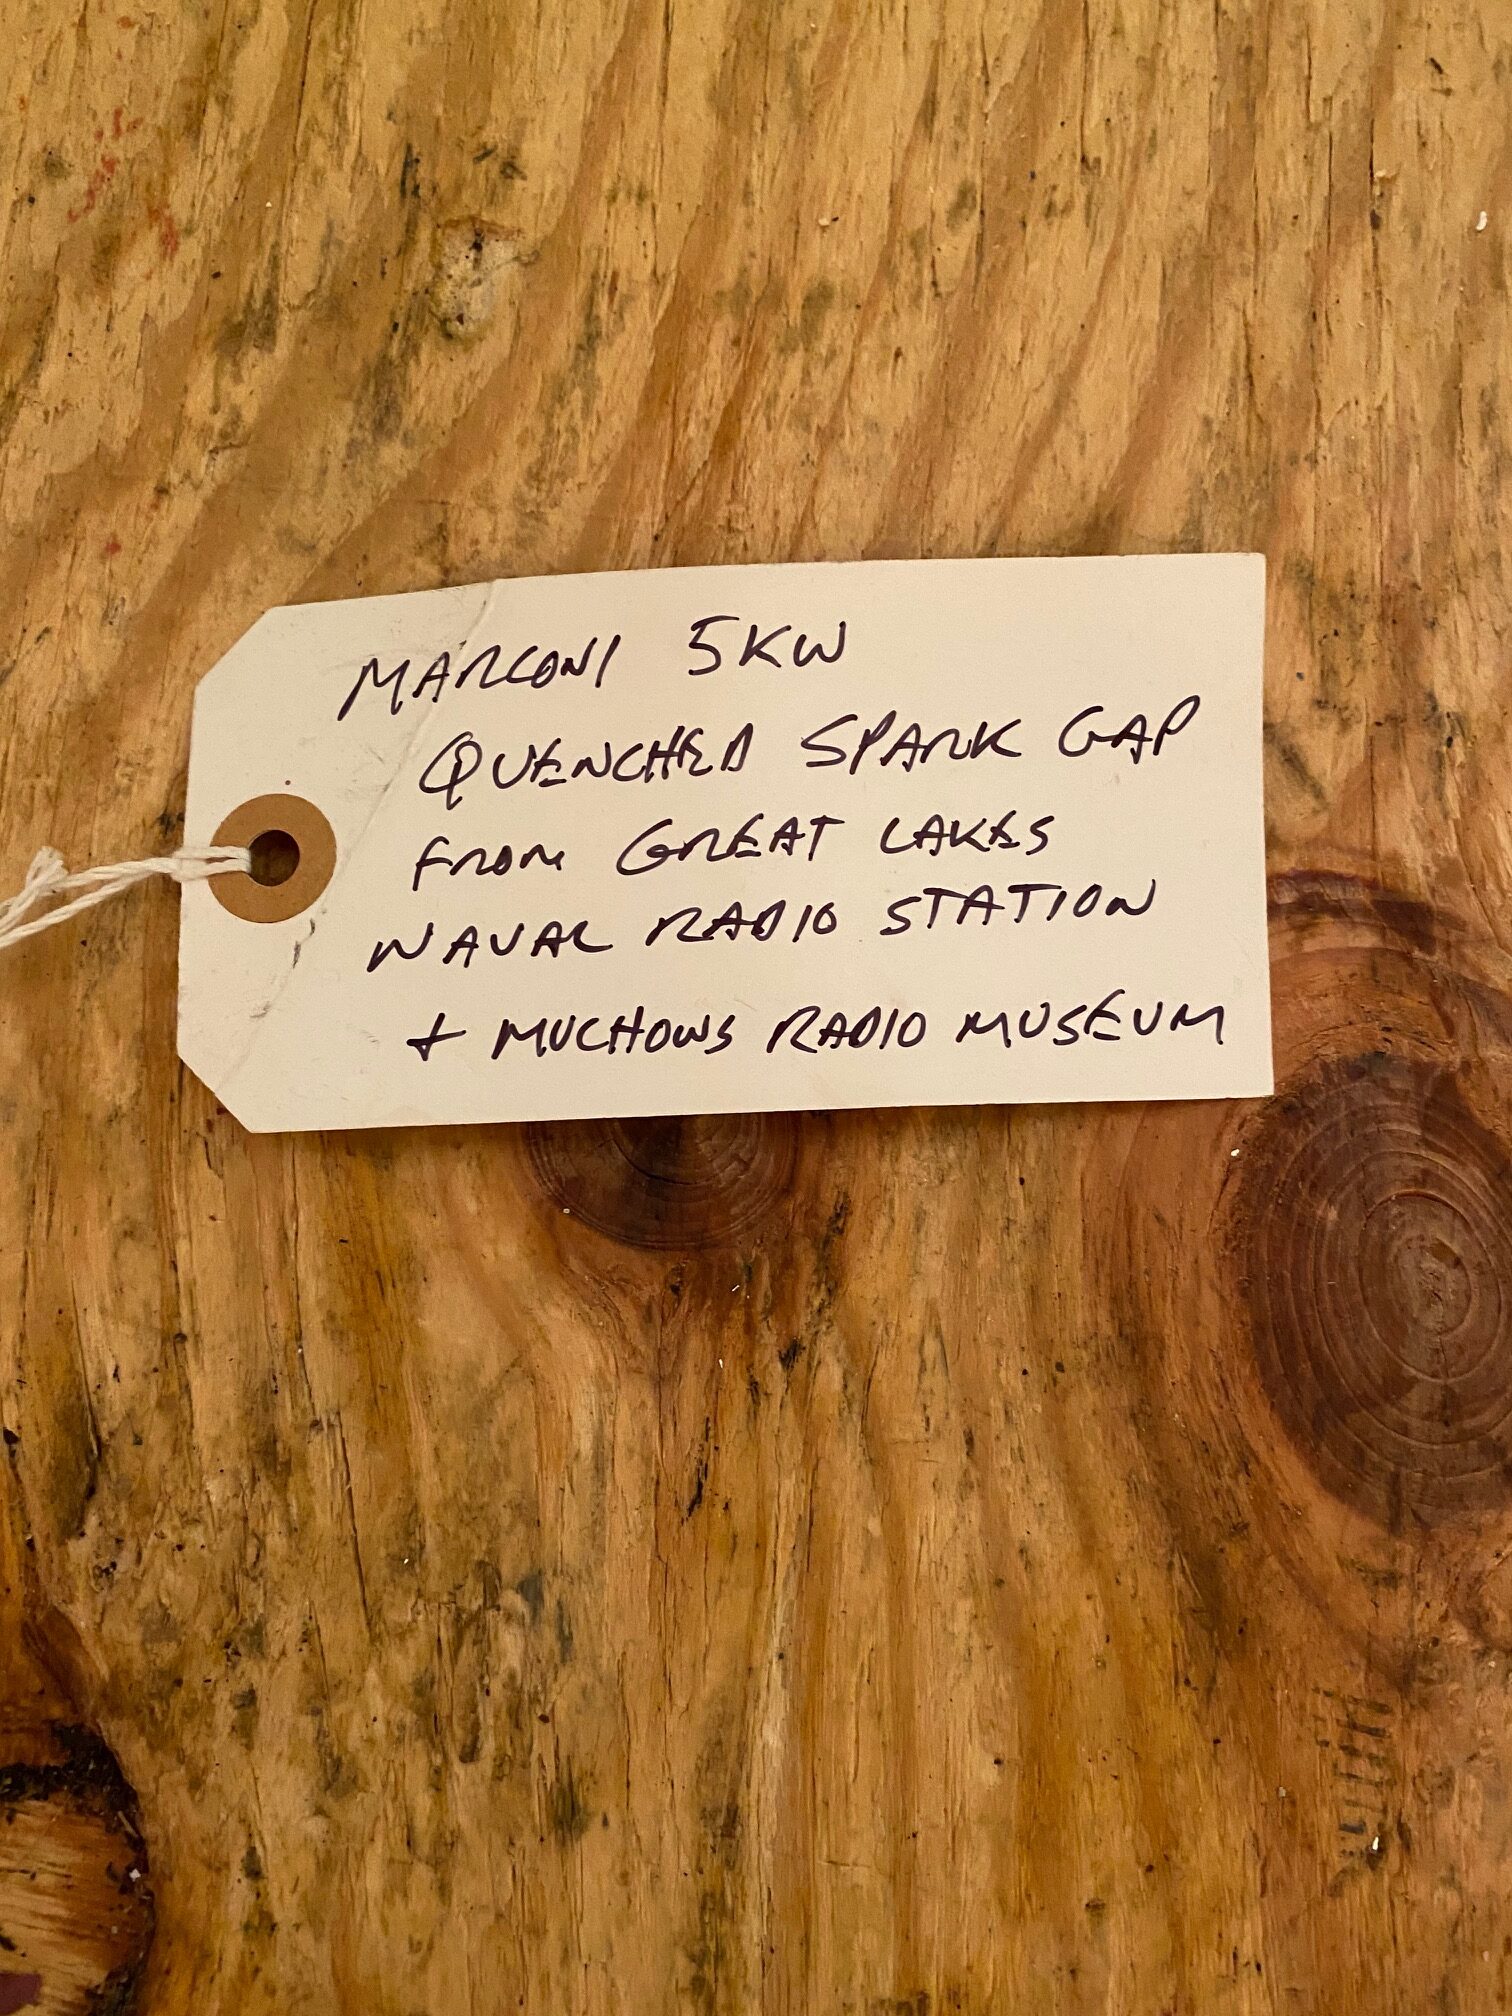 MARCONI 5KW
QUENCHED SPARK GAP
FROM GREAT LAKES
NAVAL RADIO STATION
+ MUCHOWS RADIO MUSEUM